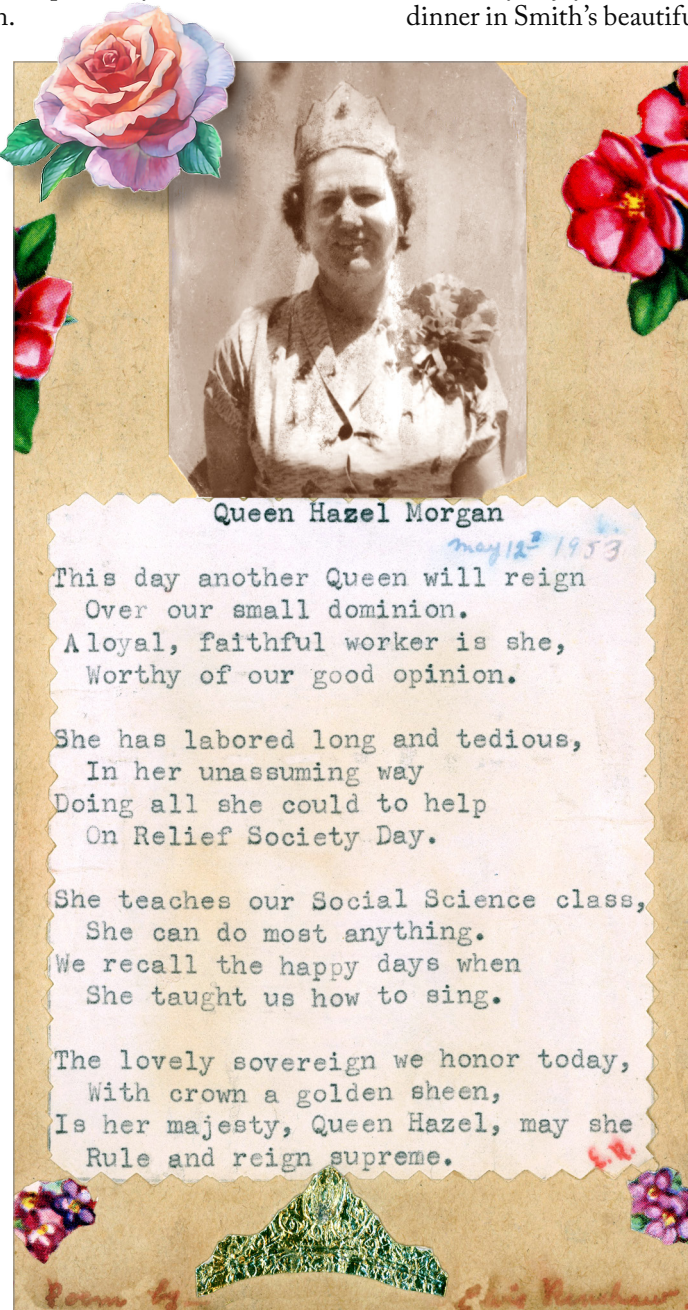 n.
dinner in Smith's beautifu
Queen Hazel Morgan
May 12 1953
This day another Queen will reign
Over our small dominion.
A loyal, faithful worker is she,
Worthy of our good opinion.
She has labored long and tedious,
In her unassuming way
Doing all she could to help
On Relief Society Day.
She teaches our Social Science class,
She can do most anything.
We recall the happy days when
She taught us how to sing.
The lovely sovereign we honor today,
With crown a golden sheen,
Is her majesty, Queen Hazel, may she
Rule and reign supreme.
E.R.
Poem by Renshaw